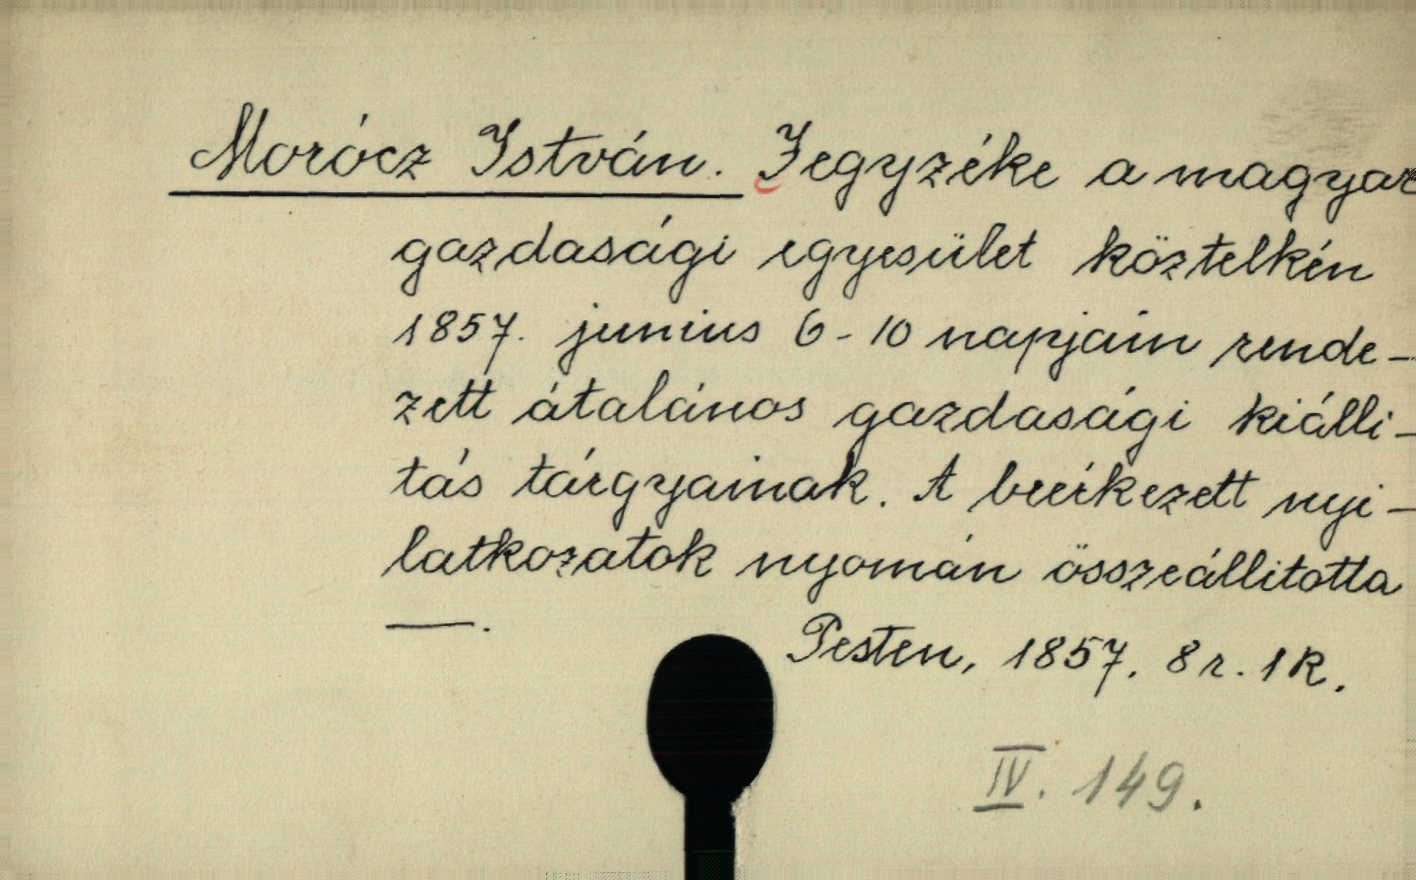 Morócz István. Jegyzéke a magyar
gazdasági egyesület köztelkén
1857. junius 6-10 napjain rende-
zett átalános gazdasági kiálli-
tás tárgyainak. A beérkezett nyi-
latkozatok nyomán összeállitotta
—. Pesten, 1857. 8r. 1K.
IV. 149.